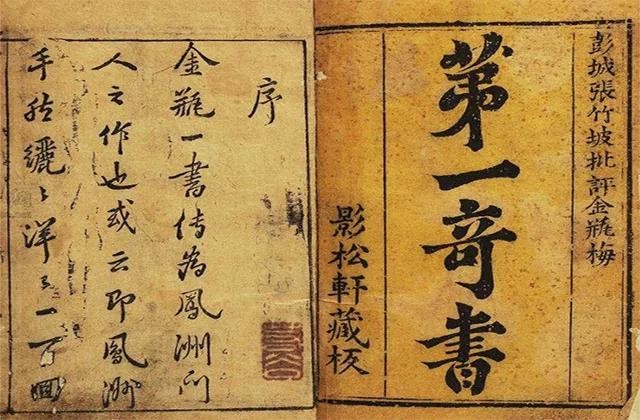 彭城張竹坡批評金瓶梅
第一奇書
影松軒藏板
序
金瓶一書傳為鳳洲門
人之作也或云即鳳洲
手然纚〻洋〻一百回